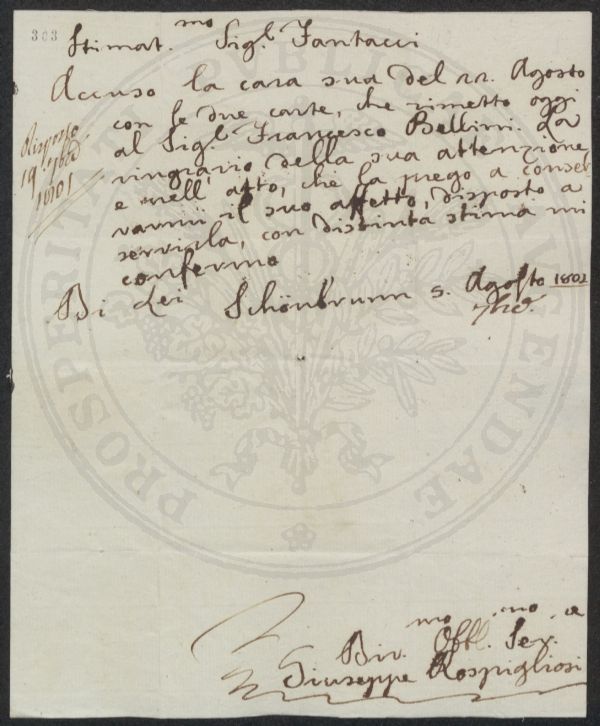 303
Stimat.mo Sig.r Fantacci
Accuso la cara sua del 22. Agosto
con le due carte, che rimetto oggi
al Sig.r Francesco Bellini. La
ringrazio della sua attenzione
e nell'atto, che la prego a conser-
varmi il suo affetto, disposto a
servirla, con distinta stima mi
confermo
Di Lei Schönbrunn 5. Agosto 1802
Risposto
19
Div.mo Obbl.mo Ser.e
Giuseppe Rospigliosi
PROSPERITATI PUBLICAE AUGENDAE